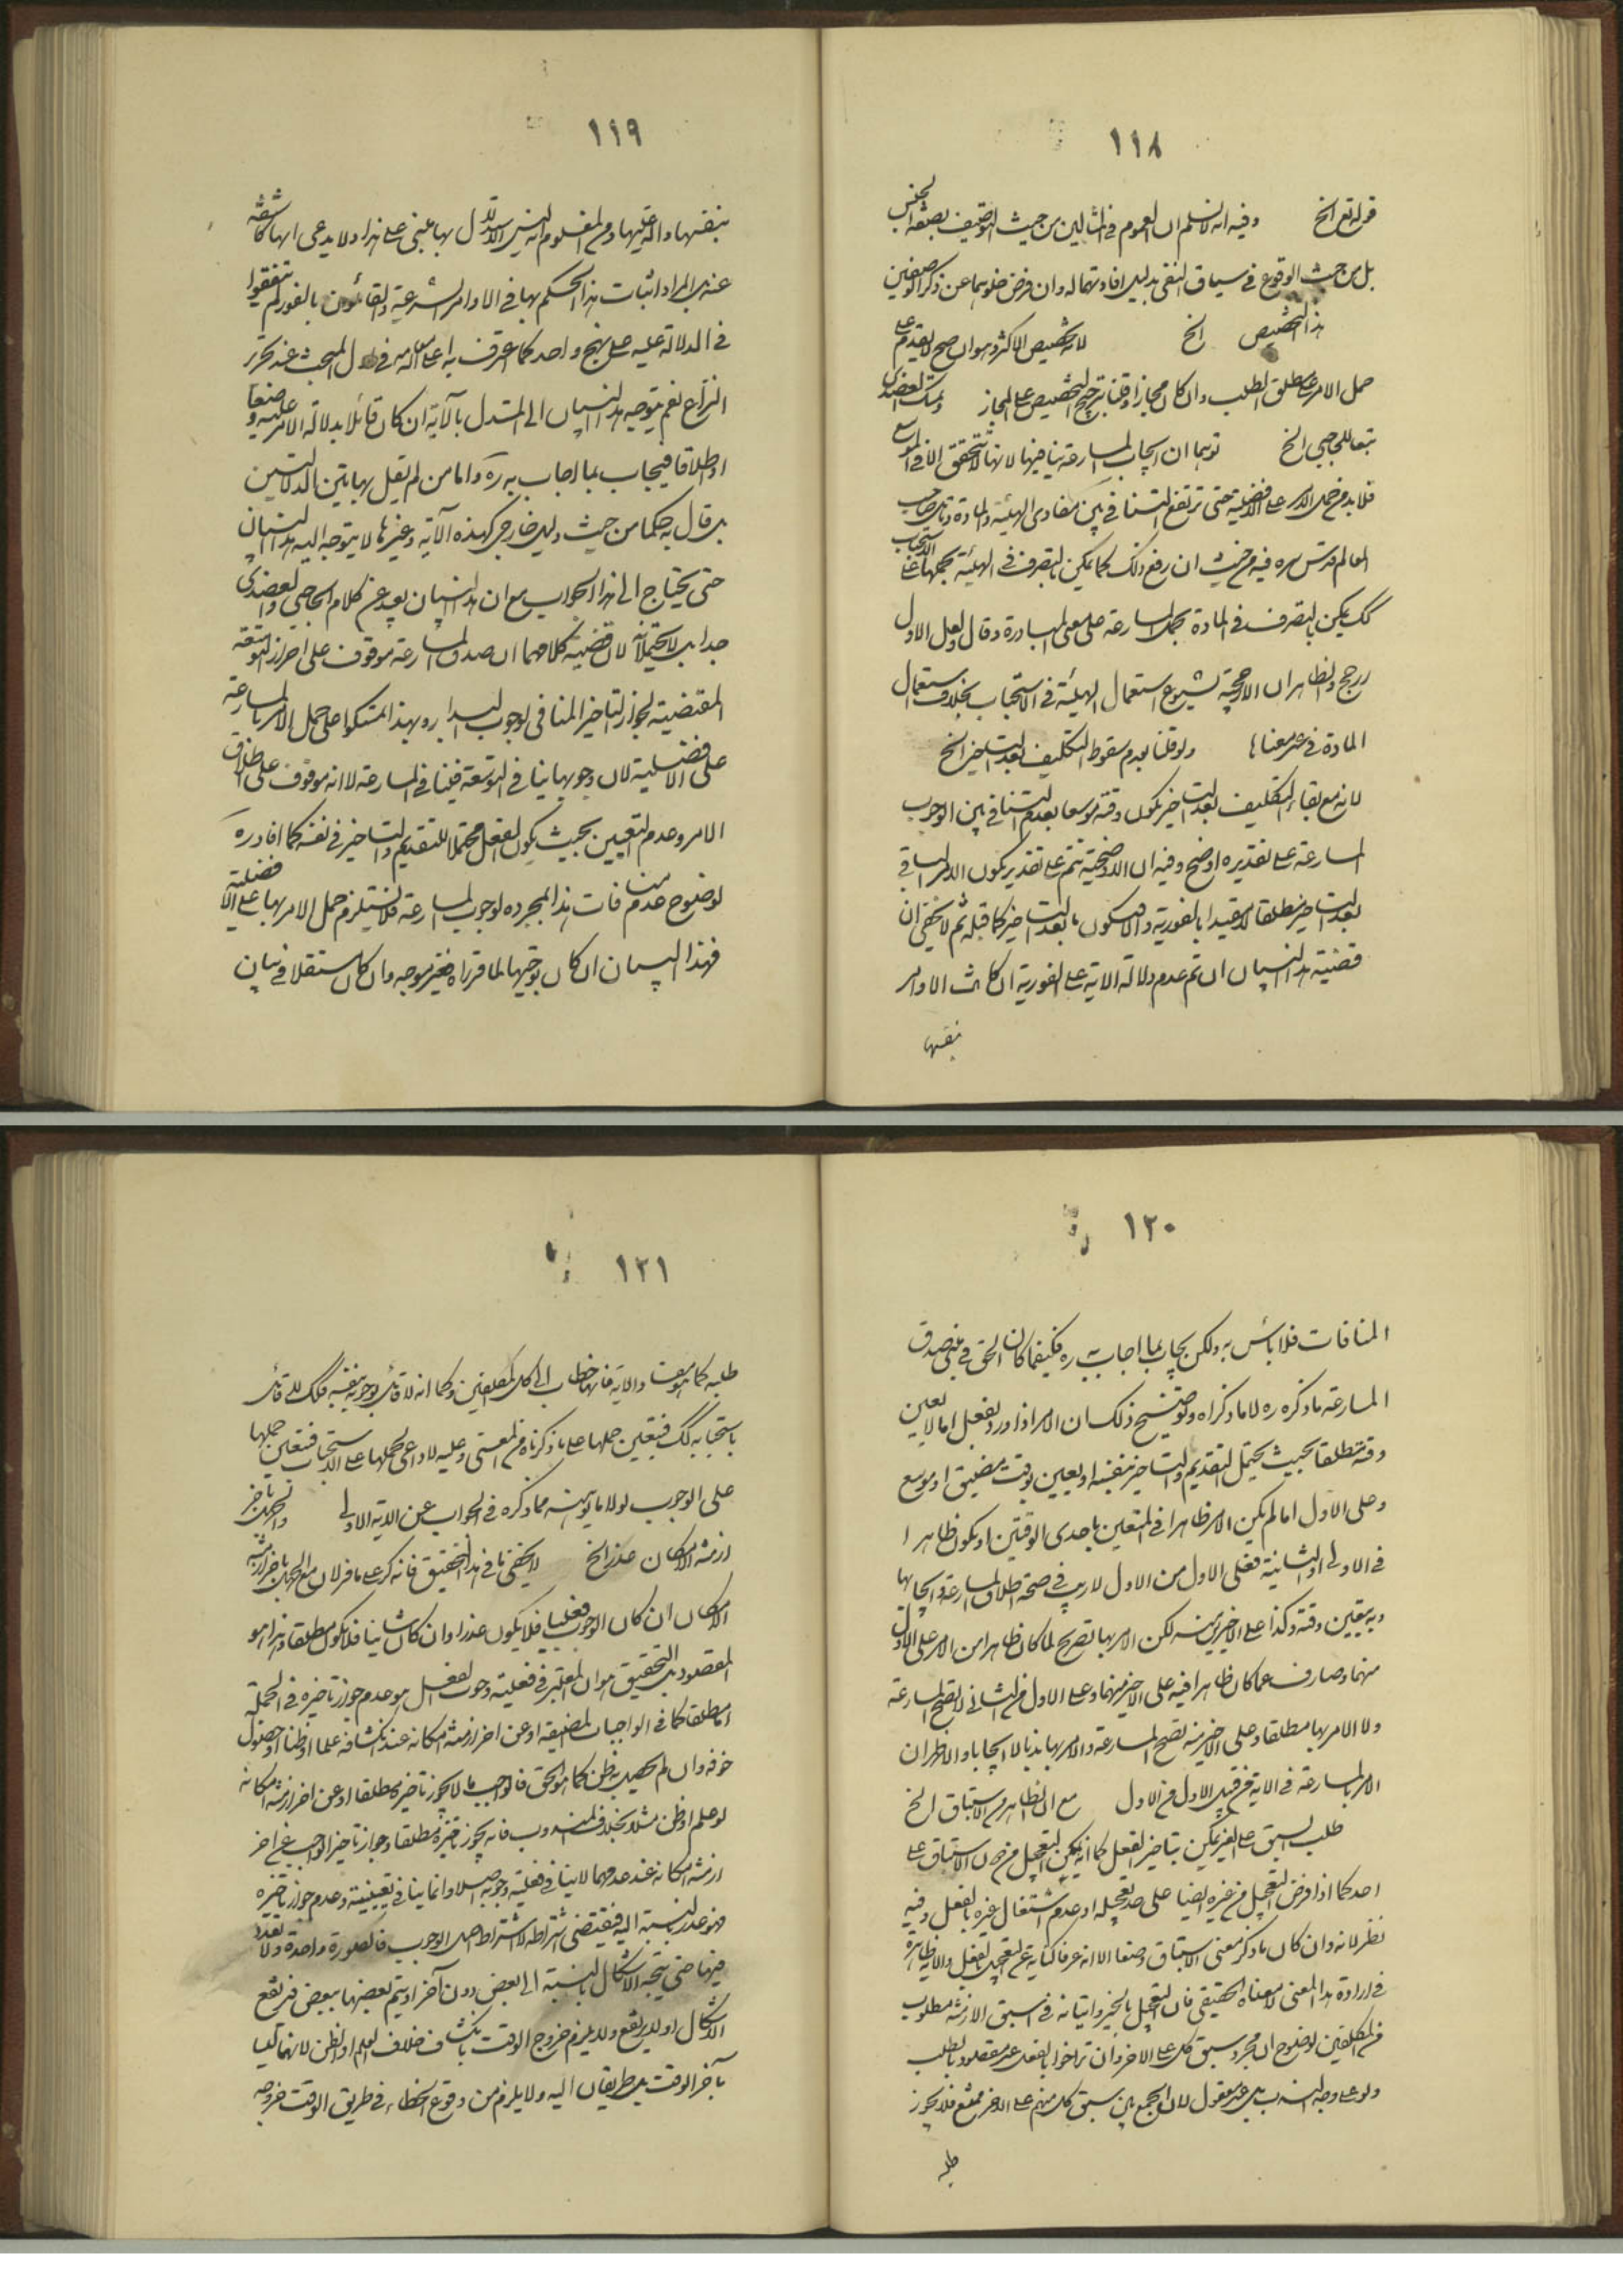 ١١٨
قوله نعم الخ وفيه انه لا نسلم ان العموم في المثالين من حيث التوصيف بصفة الجنس
بل من حيث الوقوع في سياق النفي بدليل افادتهما له وان فرض خلوهما عن ذكر الوصفين
هذا التخصيص الخ لانه تخصيص الاكثر وهو ان صح لا يقدم على
حمل الامر على مطلق الطلب وان كان مجازا وقلنا بترجيح التخصيص على المجاز وتمسك العضدي
تبعا للحاجبي الخ توهما ان ايجاب المسارعة ينافيها لانها لا تتحقق الا في الموسع
فلا بد من حمل الامر على الافضلية حتى يرتفع التنافي بين مفادي الهيئة والمادة وتامل صاحب
المعالم قدس سره فيه من حيث ان رفع ذلك كما يمكن بالتصرف في الهيئة بحملها على الاستحباب
كك يمكن بالتصرف في المادة بحمل المسارعة على معنى المبادرة وقال ولعل الاول
ارجح والظاهر ان الارجحية لشيوع استعمال الهيئة في الاستحباب بخلاف استعمال
المادة في غير معناها ولو قلنا بعدم سقوط التكليف بعد التاخير الخ
لانه مع بقاء التكليف بعد التاخير يكون وقته موسعا بعدم التنافي بين الوجوب
المسارعة على تقديره اوضح وفيه ان الاوضحية تتم على تقدير كون الامر الباقي
بعد التاخير مطلقا لا مقيدا بالفورية والا فيكون ما بعد التاخير كما قبله ثم لا يخفى ان
قضية هذا البيان ان تم عدم دلالة الاية على الفورية ان كانت الاوامر
بنفسها
١١٩
بنفسها دالة عليها ومن المعلوم انه ليس الاستدلال بها مبنى على هذا ولا يدعى انها كاشفة
عنه بل المراد اثبات هذا الحكم بها في الاوامر الشرعية والقائلون بالفور لم يتفقوا
في الدلالة عليه على نهج واحد كما اعترف به اعلى الله مقامه في اول المبحث عند تحرير
النزاع نعم يتوجه هذا البيان الى المستدل بالآية ان كان قائلا بدلالة الامر عليه وضعا
او اطلاقا فيجاب بما اجاب به ره واما من لم يقل بهاتين الدلالتين
بل قال به حكما من حيث دليل خارجي كهذه الآية وغيرها لا يتوجه اليه هذا البيان
حتى يحتاج الى هذا الجواب مع ان هذا البيان بعيد عن كلام الحاجبي والعضدي
جدا بل لا يحتملانه لان قضية كلامهما ان صدق المسارعة موقوف على احراز التوسعة
المقتضية لجواز التاخير المنافي لوجوب البدار وبهذا تمسكوا على حمل الامر بالمسارعة
على الافضلية لان وجوبها ينافي التوسعة فينافي المسارعة لا انه موقوف على اطلاق
الامر وعدم التعيين بحيث يكون الفعل محتملا للتقديم والتاخير في نفسه كما افاده ره
لوضوح عدم منافات هذا بمجرده لوجوب المسارعة فلا يستلزم حمل الامر بها على الافضلية
فهذا البيان ان كان توجيها لما قرراه فغير موجه وان كان مستقلا في بيان
١٢٠
المنافات فلا باس به ولكن يجاب بما اجاب به ره فكيفما كان الحق في معنى صدق
المسارعة ما ذكره ره لا ما ذكراه وتوضيح ذلك ان الامر اذا ورد بفعل اما لا يعين
وقته مطلقا بحيث يحتمل التقديم والتاخير بنفسه او يعين بوقت مضيق او موسع
وعلى الاول اما لم يكن الامر ظاهرا في المتعين باحدى الوقتين او يكون ظاهرا
في الاولى او الثانية فعلى الاول من الاول لا ريب في صحة اطلاق المسارعة وايجابها
وبه يتعين وقته وكذا على الاخيرين منه لكن الامر بها تصريح لما كان ظاهرا من الامر على الاول
منهما وصارف عما كان ظاهرا فيه على الاخير منهما وعلى الاول من الثاني لا تصح المسارعة
ولا الامر بها مطلقا وعلى الاخير منه تصح المسارعة والامر بها ندبا لا ايجابا والاظهر ان
الامر بالمسارعة في الاية من قبيل الاول من الاول مع ان الظاهر من الاستباق الخ
طلب السبق على الغير يمكن بتاخير الفعل كما انه يمكن التعجيل من دون الاستباق على
احد كما اذا فرض التعجيل من غيره ايضا على حد تعجيله او عدم اشتغال غيره بالفعل وفيه
نظر لانه وان كان ما ذكر معنى الاستباق وضعا الا انه عرفا كناية عن التعجيل بالفعل والاية ظاهرة
في ارادة هذا المعنى لا معناه الحقيقي فان التعجيل بالخير واتيانه في اسبق الازمنة مطلوب
من المكلفين لوضوح ان مجرد سبق كل على الاخر وان تراخوا بالفعل غير مقصود بالطلب
ولو على وجه الندب بل غير معقول لان الجمع بين سبق كل منهم على الاخر ممتنع فلا يجوز
طلبه
١٢١
طلبه كما هو معنى والاية فانها خطاب الى كل المكلفين وكما انه لا قائل بوجوبه بنفسه فكك لا قائل
باستحبابه كك فيتعين حملها على ما ذكرناه من المعنى وعليه لا داعي لحملها على الاستحباب فيتعين حملها
على الوجوب لولا ما يوهنه مما ذكره في الجواب عن الاية الاولى والجهل باخر
ازمنة الامكان عذر الخ لا يخفى ما في هذا التحقيق فانه كر على ما فر لان مع الجهل باخر ازمنة
الامكان ان كان الوجوب فعليا فلا يكون عذرا وان كان شانيا فلا يكون مطلقا وهذا هو
المقصود بل التحقيق هو ان المعتبر في فعلية وجوب الفعل هو عدم جواز تاخيره في الجملة
اما مطلقا كما في الواجبات المضيقة او عن اخر ازمنة امكانه عند انكشافه علما او ظنا او حصول
خوفه وان لم يحصل به ظن كما هو الحق فالواجب ما لا يجوز تاخيره مطلقا او عن اخر ازمنة امكانه
لو علم او ظن مثلا بخلاف المندوب فانه يجوز تاخيره مطلقا وجواز تاخير الواجب عن اخر
ازمنة امكانه عند عدمهما لا ينافي فعلية وجوبه اصلا وانما ينافي تعيينيته وعدم جواز تاخيره
فهو عذر بالنسبة اليه فيقتضي اشتراطه لا اشتراط اصل الوجوب فالصورة واحدة ولا تعدد
فيها حتى يتجه الاشكال بالنسبة الى بعض دون آخر او يتم بعضها ببعض فيرتفع
الاشكال او لا يرتفع ولا يلزم خروج الوقت بانكشاف خلاف العلم او الظن لانهما ليسا
بآخر الوقت بل طريقان اليه ولا يلزم من وقوع الخطاء في طريق الوقت خروجه